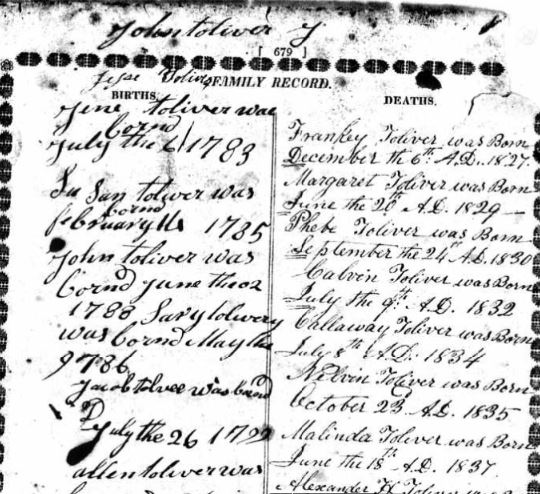 John toliver J
[ 679 ]
Jesse Toliver
FAMILY RECORD.
BIRTHS.
Jene toliver was
bornd
July the 6 1783
Su San toliver was
bornd
february 11 1785
John toliver was
bornd june the 02
1788 Sary tolivery
was bornd May the
9 1786
Jacob tolvee was bornd
July the 26 1792
allen toliver was
DEATHS.
Frankey Toliver was Born
December th 6th A.D. 1827.
Margaret Toliver was Born
June the 26 A.D. 1829
Phebe Toliver was Born
September the 24th A.D. 1830
Calvin Toliver was Born
July the 9th A.D. 1832
Callaway Toliver was Born
July 8th A.D. 1834
Kelvin Toliver was Born
October 23d A.D. 1835
Malinda Toliver was Born
June the 18th A.D. 1837.
Alexander H Toliver was Born